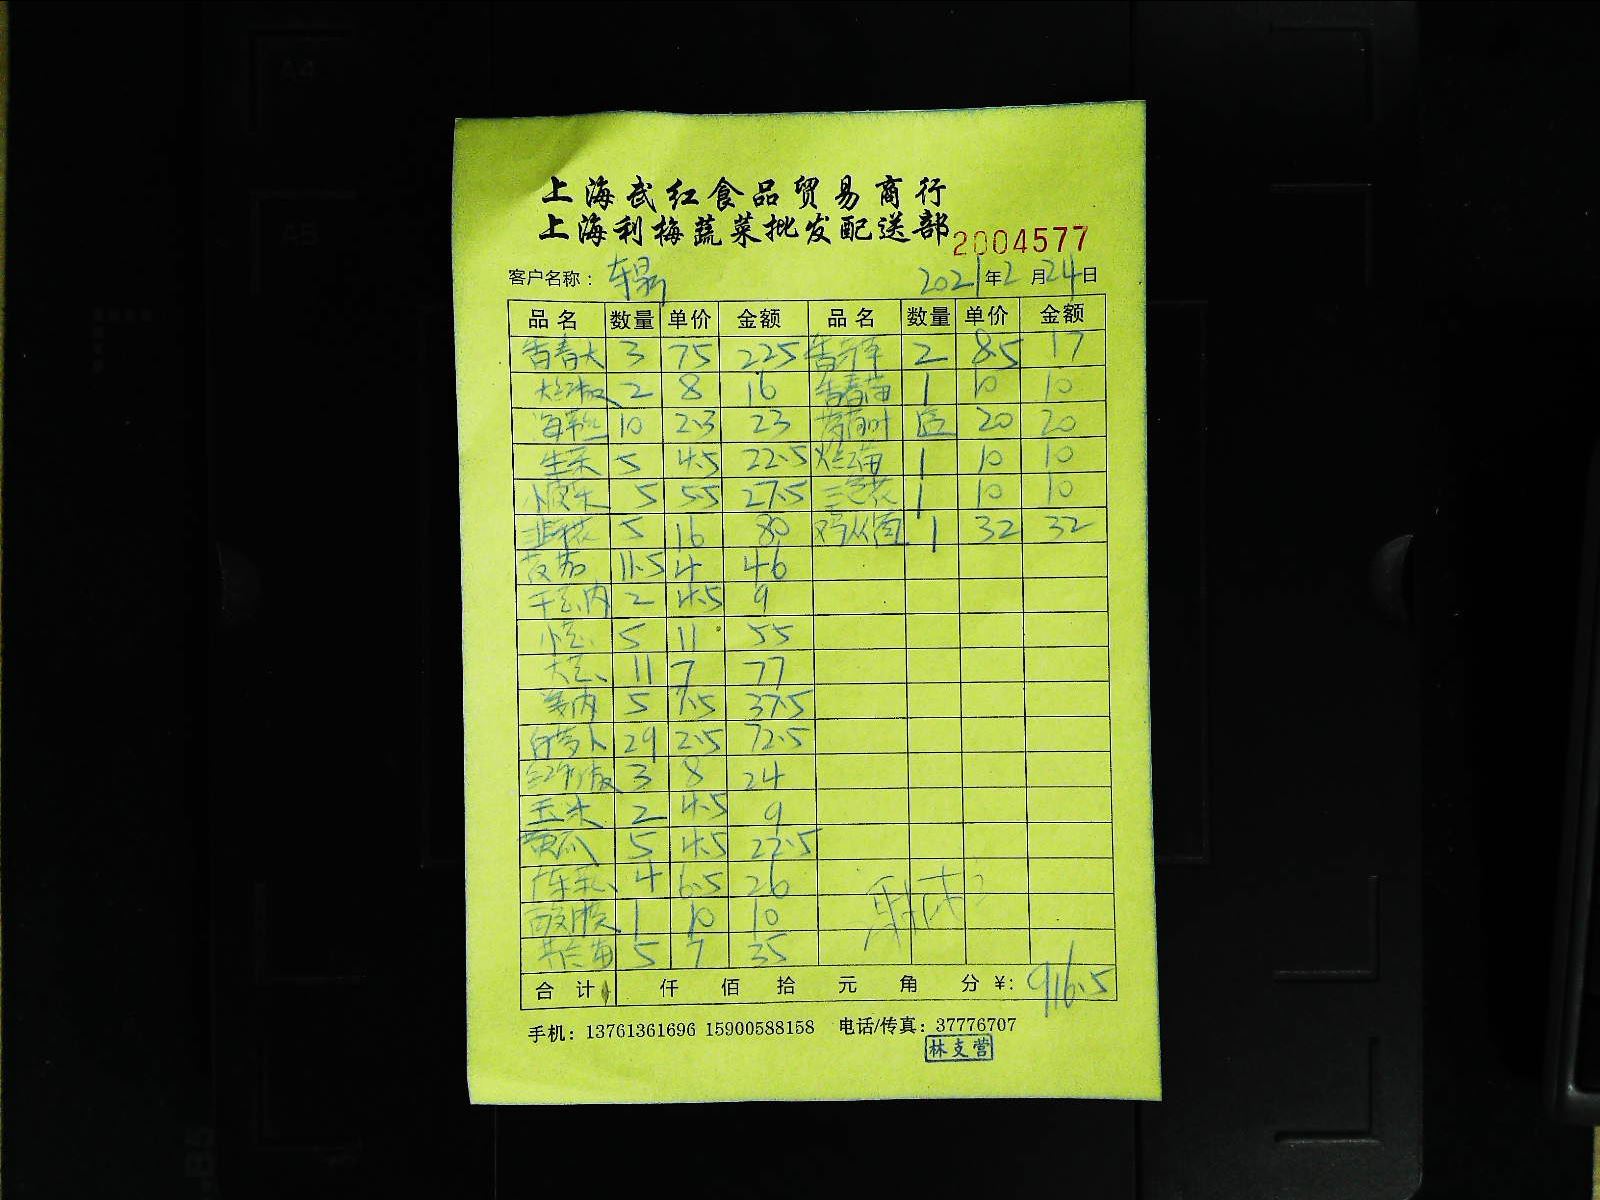 上海武红食品贸易商行
上海利梅蔬菜批发配送部
2004577
客户名称: 2021年2月24日
品名 数量 单价 金额 品名 数量 单价 金额
3 75 225 2 8.5 17
2 8 16 香春苗 1 10 10
10 2.3 23 薄荷叶 20 20
生菜 5 4.5 22.5 1 10 10
5 5.5 27.5 三色花 1 10 10
韭菜花 5 16 80 1 32 32
11.5 4 46
2 4.5 9
小葱 5 11 55
大葱 11 7 77
姜肉 5 7.5 37.5
白萝卜 29 2.5 72.5
3 8 24
玉米 2 4.5 9
黄瓜 5 4.5 22.5
广东菜心 4 6.5 26
1 10 10
5 7 35
合计 仟 佰 拾 元 角 分 ¥: 916.5
手机: 13761361696 15900588158 电话/传真: 37776707
林支营